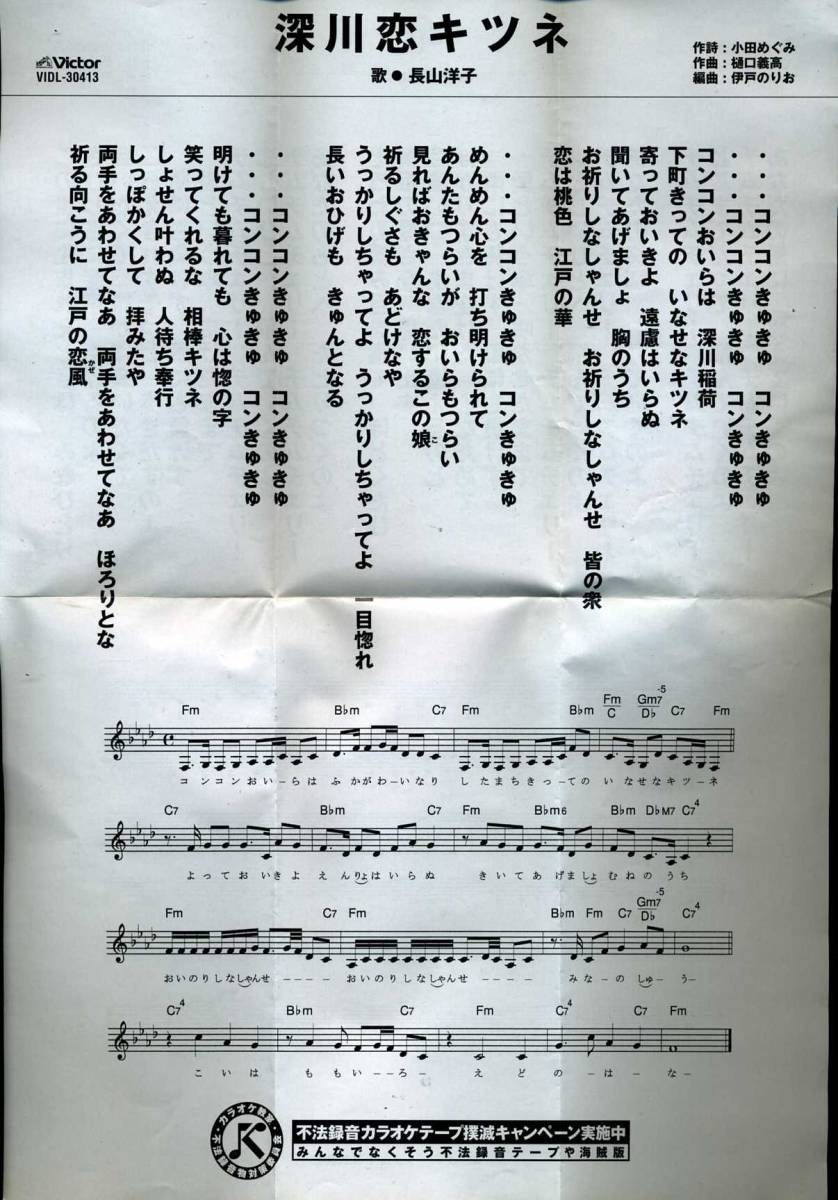 深川恋キツネ
Victor
VIDL-30413
歌●長山洋子
作詩：小田めぐみ
作曲：樋口義高
編曲：伊戸のりお
・・・コンコンきゅきゅ　コンきゅきゅ
・・・コンコンきゅきゅ　コンきゅきゅ
コンコンおいらは　深川稲荷
下町きっての　いなせなキツネ
寄っておいきよ　遠慮はいらぬ
聞いてあげましょ　胸のうち
お祈りしなしゃんせ　お祈りしなしゃんせ　皆の衆
恋は桃色　江戸の華
・・・コンコンきゅきゅ　コンきゅきゅ
めんめん心を　打ち明けられて
あんたもつらいが　おいらもつらい
見ればおきゃんな　恋するこの娘
こ
祈るしぐさも　あどけなや
うっかりしちゃってよ　うっかりしちゃってよ　一目惚れ
長いおひげも　きゅんとなる
・・・コンコンきゅきゅ　コンきゅきゅ
・・・コンコンきゅきゅ　コンきゅきゅ
明けても暮れても　心は惚の字
笑ってくれるな　相棒キツネ
しょせん叶わぬ　人待ち奉行
しっぽかくして　拝みたや
両手をあわせてなあ　両手をあわせてなあ　ほろりとな
祈る向こうに　江戸の恋風
かぜ
Fm B♭m C7 Fm B♭m Fm/C Gm7-5/D♭ C7 Fm
コンコンおい－らは ふかがわ－いなり したまちきっ－ての いなせなキツ－ネ
C7 B♭m C7 Fm B♭m6 B♭m D♭M7 C74
よっておいきよ えんりょはいらぬ きいてあげましょ むねのうち
Fm C7 Fm B♭m Fm C7 Gm7-5/D♭ C74
おいのりしなしゃんせ－－－－ おいのりしなしゃんせ－－－－ みな－の しゅう－
C74 B♭m C7 Fm C74 C7 Fm
こいは ももい－ろ－ えどの－は－な－
カラオケ教室・不法録音物対策委員会
不法録音カラオケテープ撲滅キャンペーン実施中
みんなでなくそう不法録音テープや海賊版